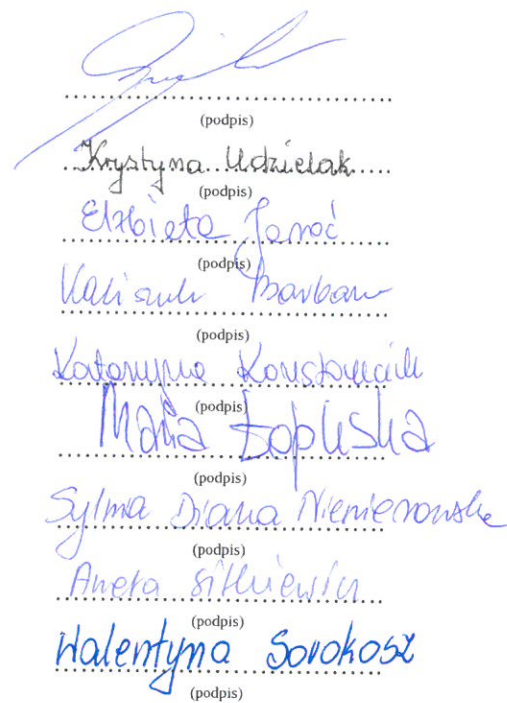 (podpis)
Krystyna Udzielak
(podpis)
Elżbieta Janoć
(podpis)
Kaliszuk Barbara
(podpis)
Katarzyna
(podpis)
Maria Łopuska
(podpis)
Sylwia Diana Niemierowska
(podpis)
Aneta Sitkiewicz
(podpis)
Walentyna Sorokosz
(podpis)